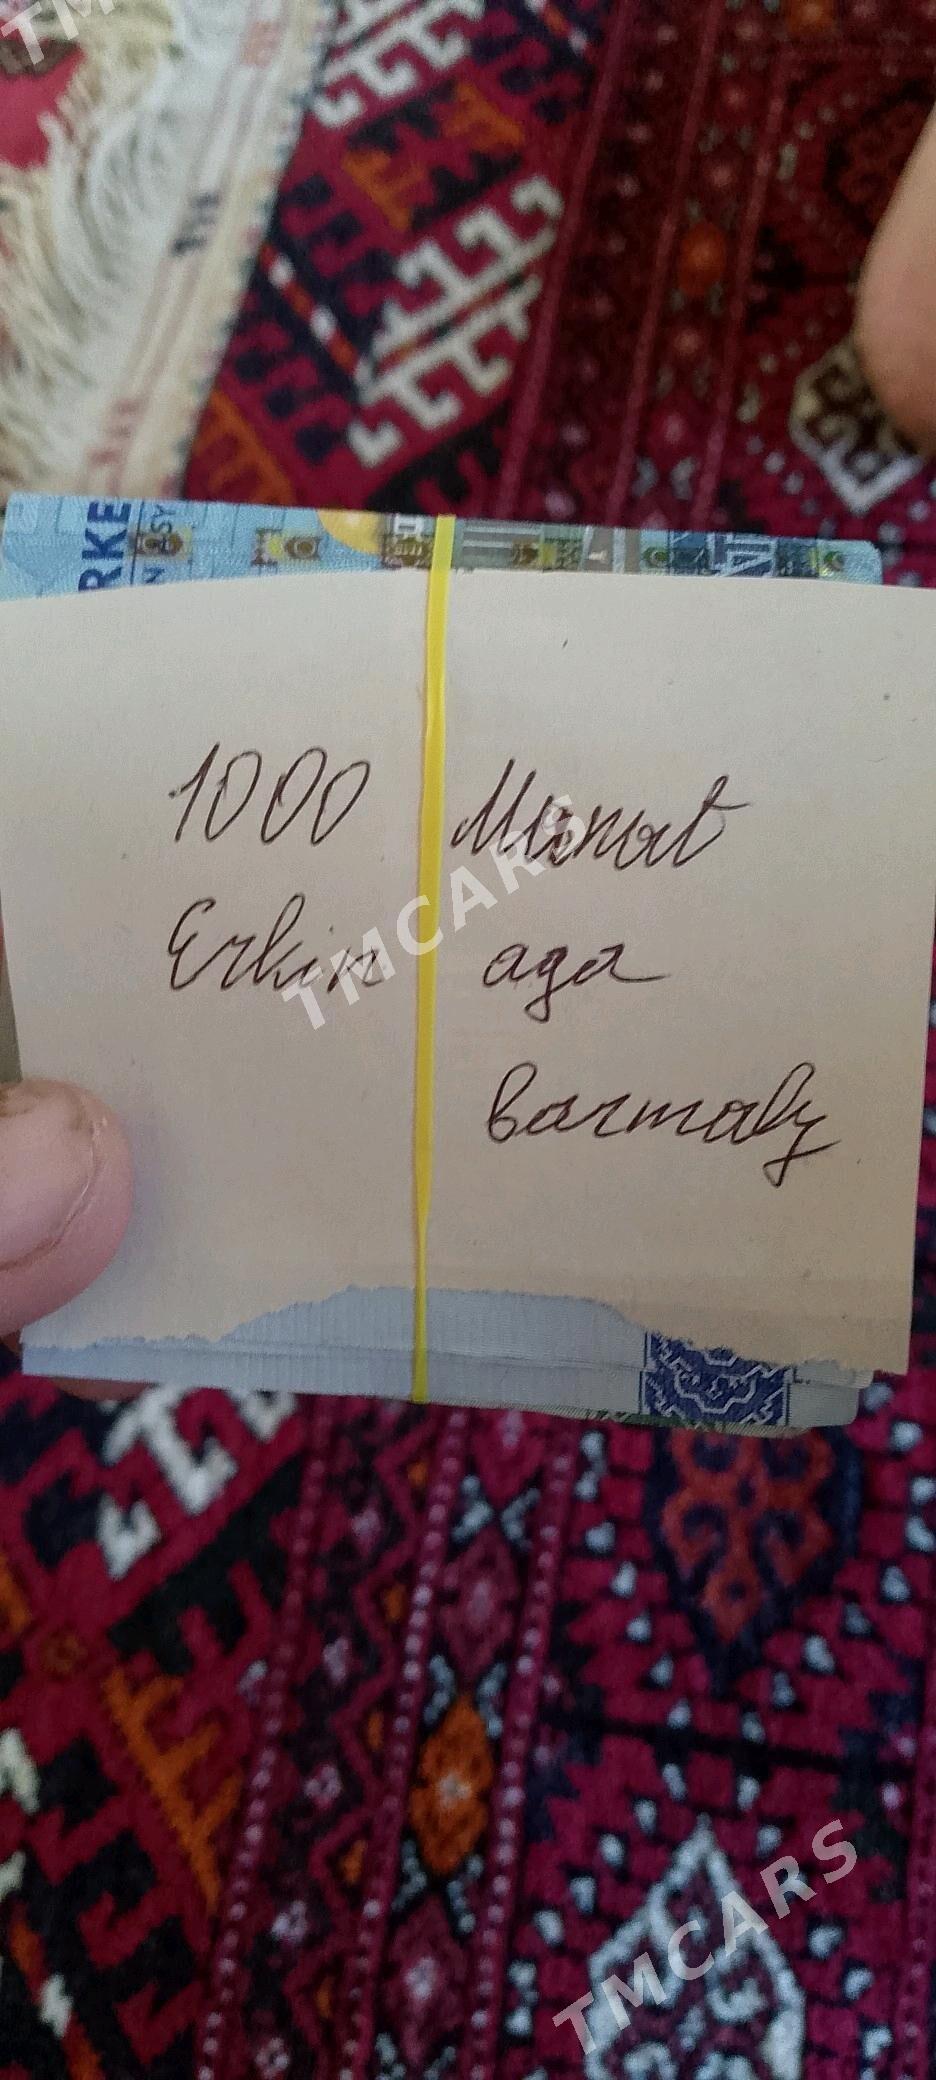 TMCARS
RKE
N
SY
1000 Manat
Erkin aga
barmaly
TMCARS
TMCARS